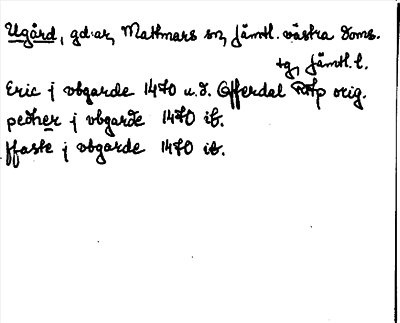 Ugård, gd·ar, Mattmars sn, Jämtl. västra doms.
tg, Jämtl. l.
Eric j vbgarde 1470 u.d. Offerdal RAp orig.
pedher j vbgarde 1470 ib.
ffaste j vbgarde 1470 ib.